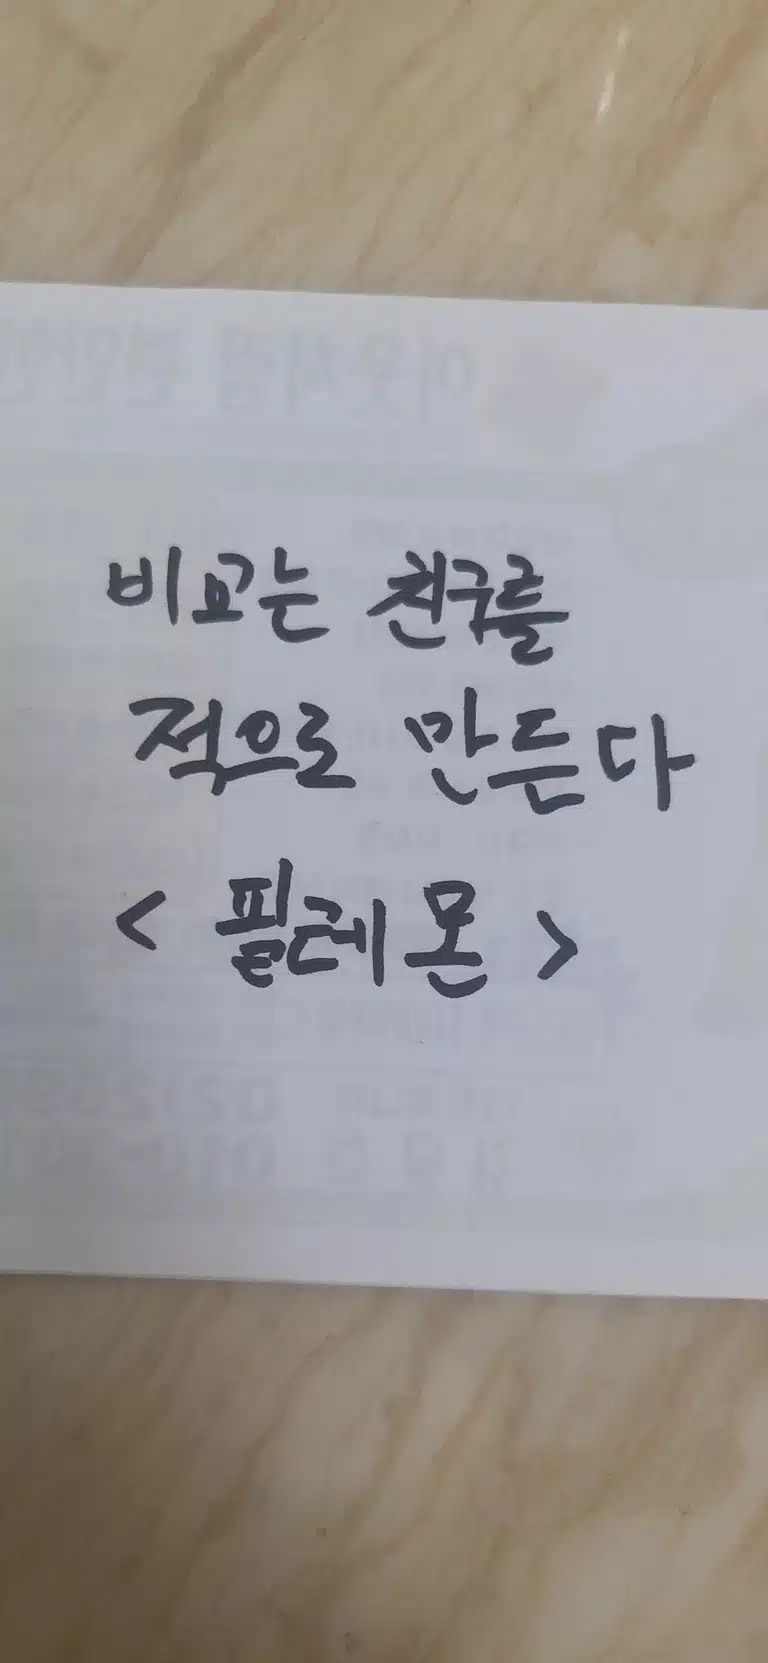 비교는 친구를
적으로 만든다
< 필레몬 >